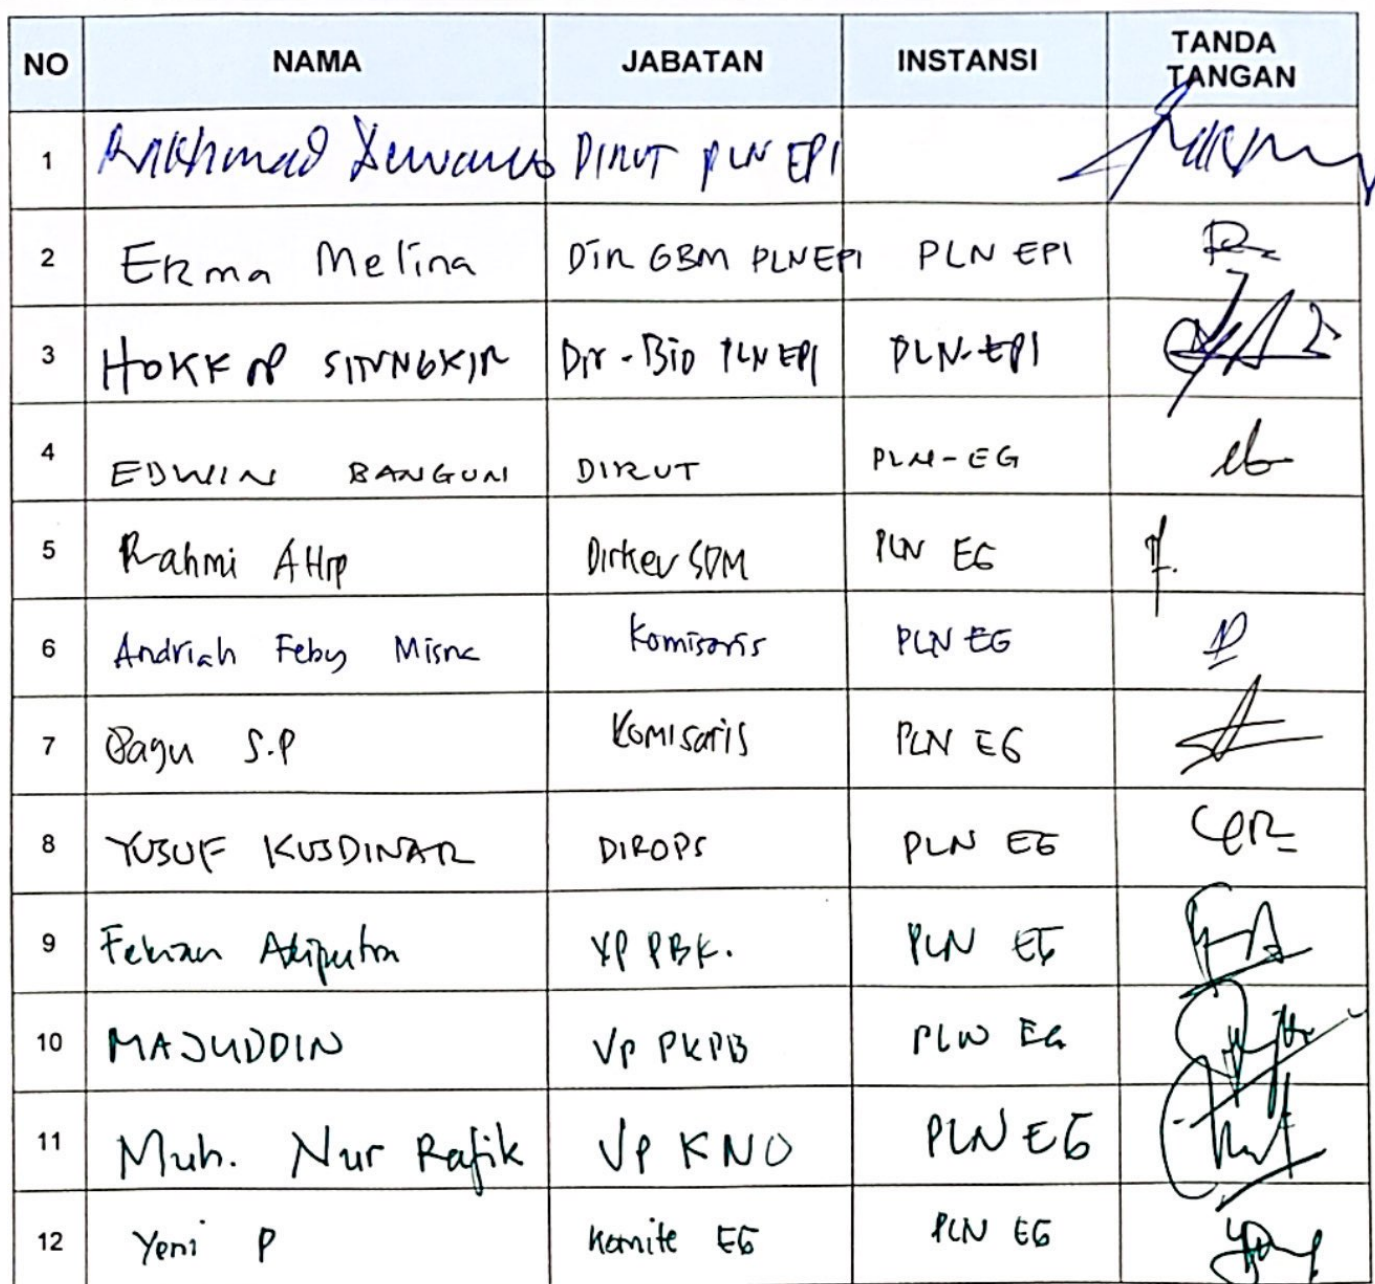 NO NAMA JABATAN INSTANSI TANDA TANGAN
1 Rakhmad Dewanto DIRUT PLN EPI
2 Erma Melina Dir GBM PLN EPI PLN EPI
3 HOKKOP SITUNGKIR Dir - Bio PLN EPI PLN-EPI
4 EDWIN BANGUN DIRUT PLN-EG
5 Rahmi AHrp Dirkeu SDM PLN EG
6 Andriah Feby Misna Komisaris PLN EG
7 Bagu S.P Komisaris PLN EG
8 YUSUF KUSDINAR DIROPS PLN EG
9 Febrian Adiputra VP PBK. PLN EG
10 MAJUDDIN VP PKPB PLN EG
11 Muh. Nur Rafik VP KNO PLN EG
12 Yeni P Komite EG PLN EG